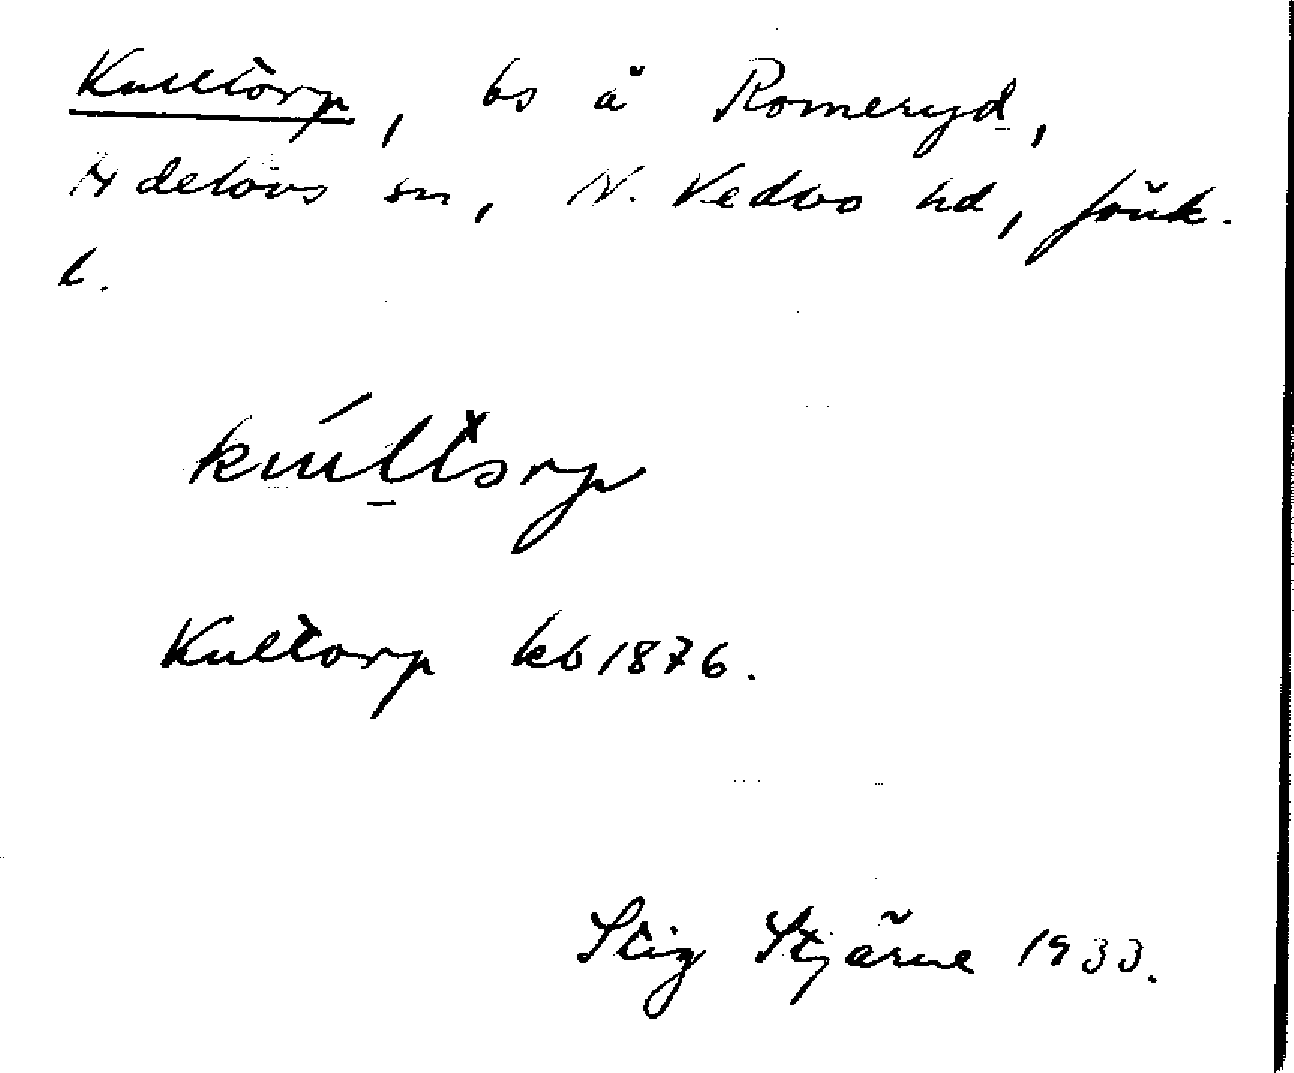 Kulltorp, bs å Romeryd,
Adelövs sn, N. Vedbo hd, Jönk.
l.
kúlltå̀rp
Kultorp kb 1876.
Stig Stjärne 1933.